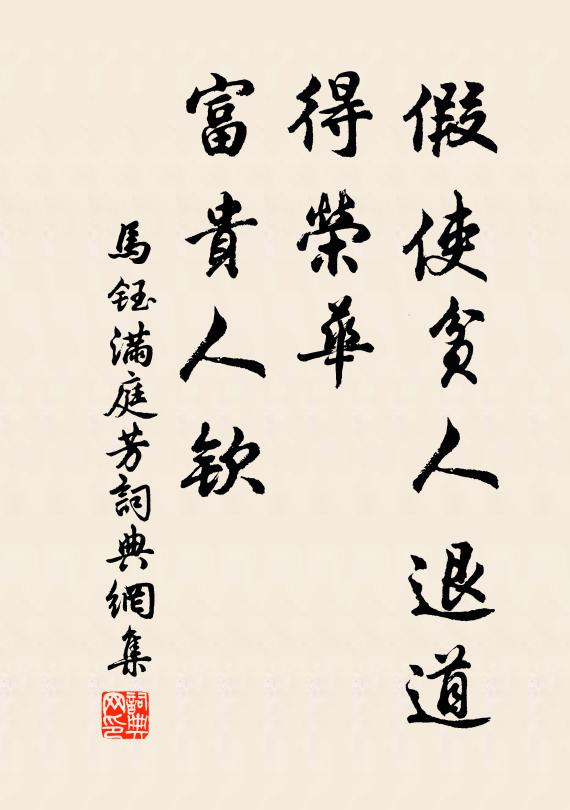 假使貧人退道
得榮華
富貴人欽
馬鈺滿庭芳詞典網集
詞典網印